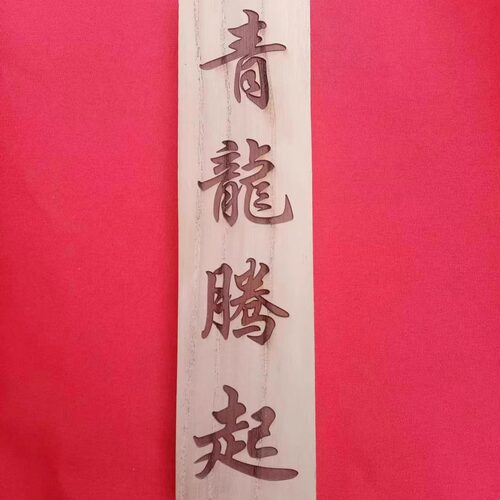 青龍騰起